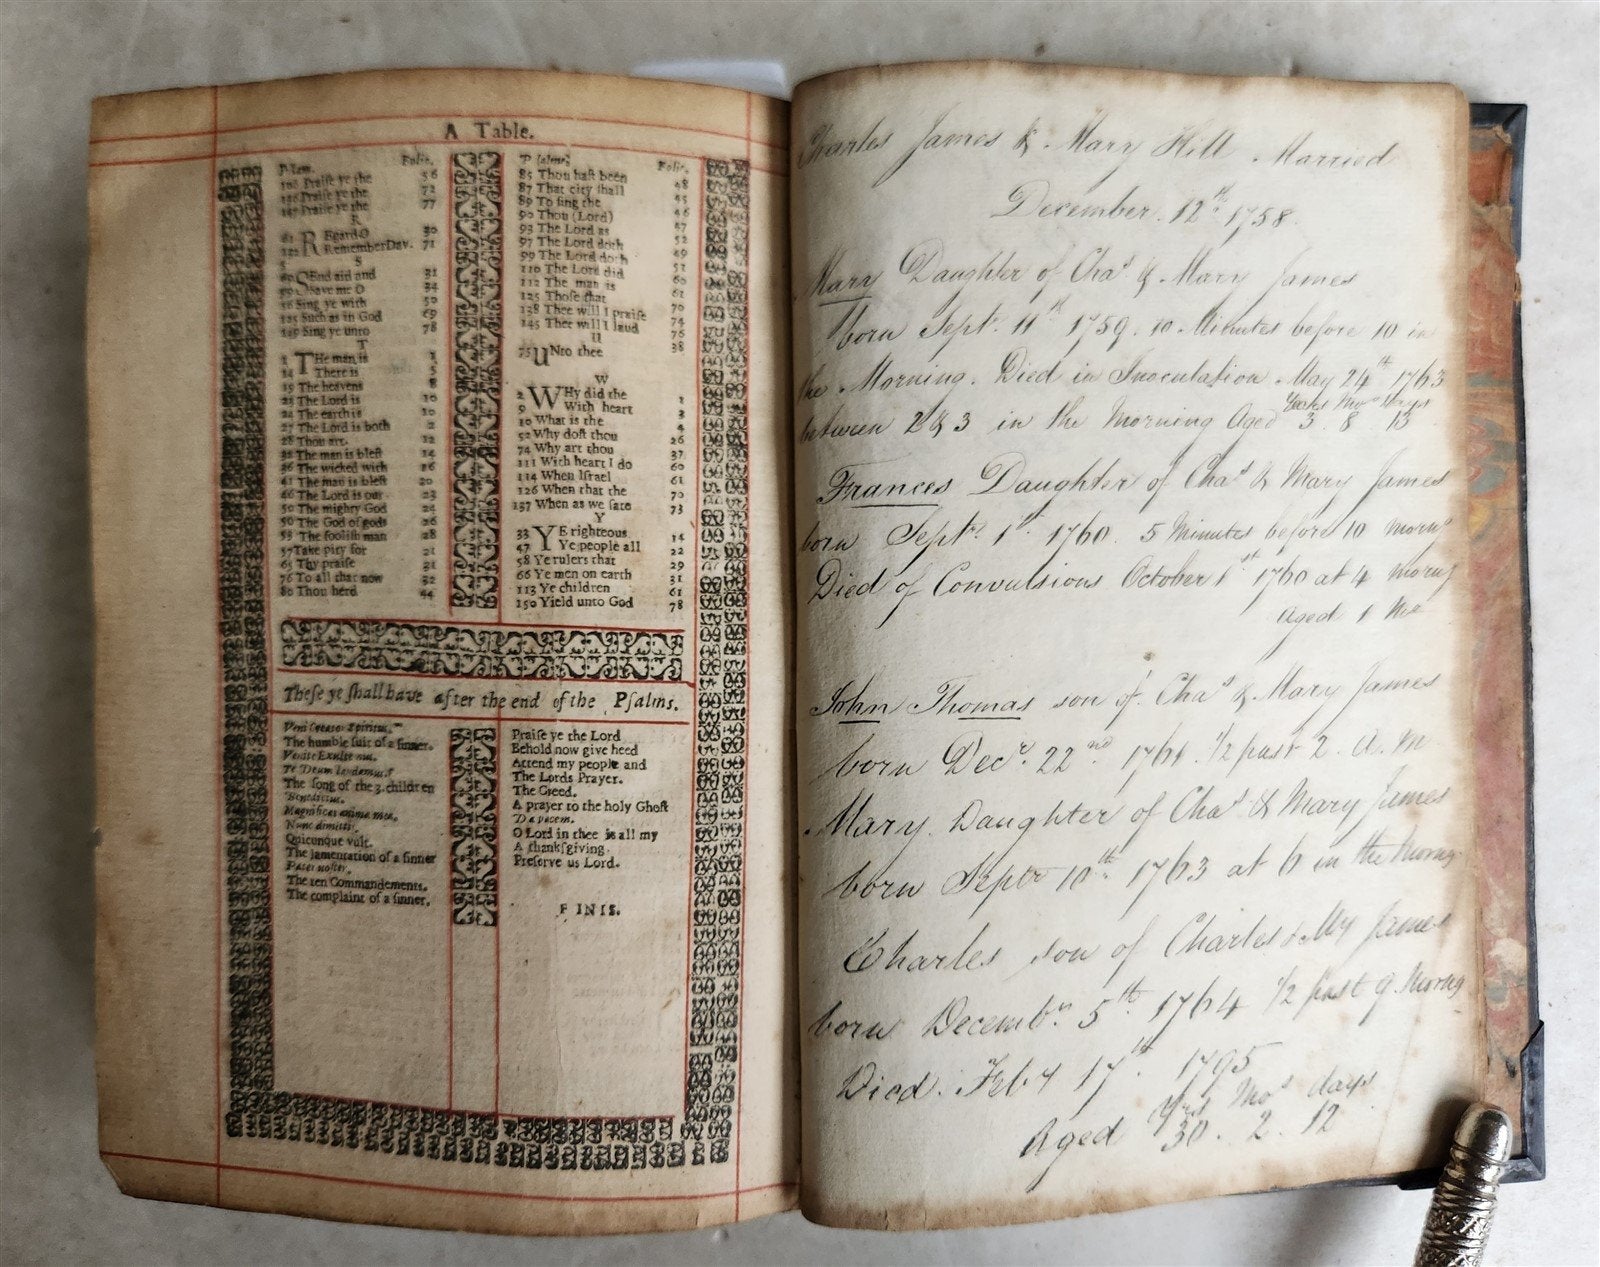 A Table.
Folio.
Praise ye the 56
Praise ye the 72
147 Praise ye the 77
R
REgard O 30
Remember Dav. 71
S
SEnd aid and 31
Save me O 34
Sing ye with 50
Such as in God 69
149 Sing ye unto 78
T
1 THe man is 1
14 There is 5
19 The heavens 8
The Lord is 10
24 The earth is 10
27 The Lord is both 2
28 Thou art. 12
32 The man is blest 14
36 The wicked with 16
41 The man is blest 20
46 The Lord is our 23
50 The mighty God 24
50 The God of gods 26
53 The foolish man 28
57 Take pity for 21
65 Thy praise 31
76 To all that now 32
80 Thou herd 44
Psalme. Folio.
85 Thou hast been 48
87 That city shall
89 To sing the 45
90 Thou (Lord) 46
93 The Lord as 47
97 The Lord doth 52
99 The Lord doth 49
110 The Lord did 51
112 The man is 60
125 Those that 61
138 Thee will I praise 70
145 Thee will I laud 74
U 76
75 UNto thee 38
W
2 WHy did the 1
9 With heart 3
10 What is the 4
52 Why dost thou 26
74 Why art thou 37
111 With heart I do 60
114 When Israel 61
126 When that the 70
137 When as we sate 73
Y
33 YE righteous 14
47 Ye people all 22
58 Ye rulers that 29
66 Ye men on earth 31
113 Ye children 61
150 Yield unto God 78
These ye shall have after the end of the Psalms.
Veni Creator Spiritus.
The humble suit of a sinner.
Venite Exulte mu.
Te Deum laudamus.
The song of the 3. children
Benedictus.
Magnificat anima mea.
Nunc dimittis.
Quicunque vult.
The lamentation of a sinner
Pater noster.
The ten Commandements.
The complaint of a sinner.
Praise ye the Lord
Behold now give heed
Attend my people and
The Lords Prayer.
The Creed.
A prayer to the holy Ghost
Da pacem.
O Lord in thee is all my
A thanksgiving.
Preserve us Lord.
FINIS.
Charles James & Mary Hill Married
December. 12th 1758.
Mary Daughter of Chas & Mary James
born Septr. 11th 1759. 10 Minutes before 10 in
the Morning. Died in Inoculation May 24th 1763
Years Mos Days
between 2 & 3 in the Morning Aged 3. 8 13
Frances Daughter of Chas & Mary James
born Septr. 1st 1760. 5 Minutes before 10 morng
Died of Convulsions October 1st 1760 at 4 morng
Aged 1 Mo
John Thomas son of Chas & Mary James
born Decr. 22nd 1761. 1/2 past 2. A. M
Mary. Daughter of Chas & Mary James
born Septr 10th 1763 at 6 in the Morng
Charles son of Charles & My James
born Decembr. 5th 1764 1/2 past 9. Morng
Died. Feby 17th. 1795
Yrs Mos days
Aged 30. 2. 12